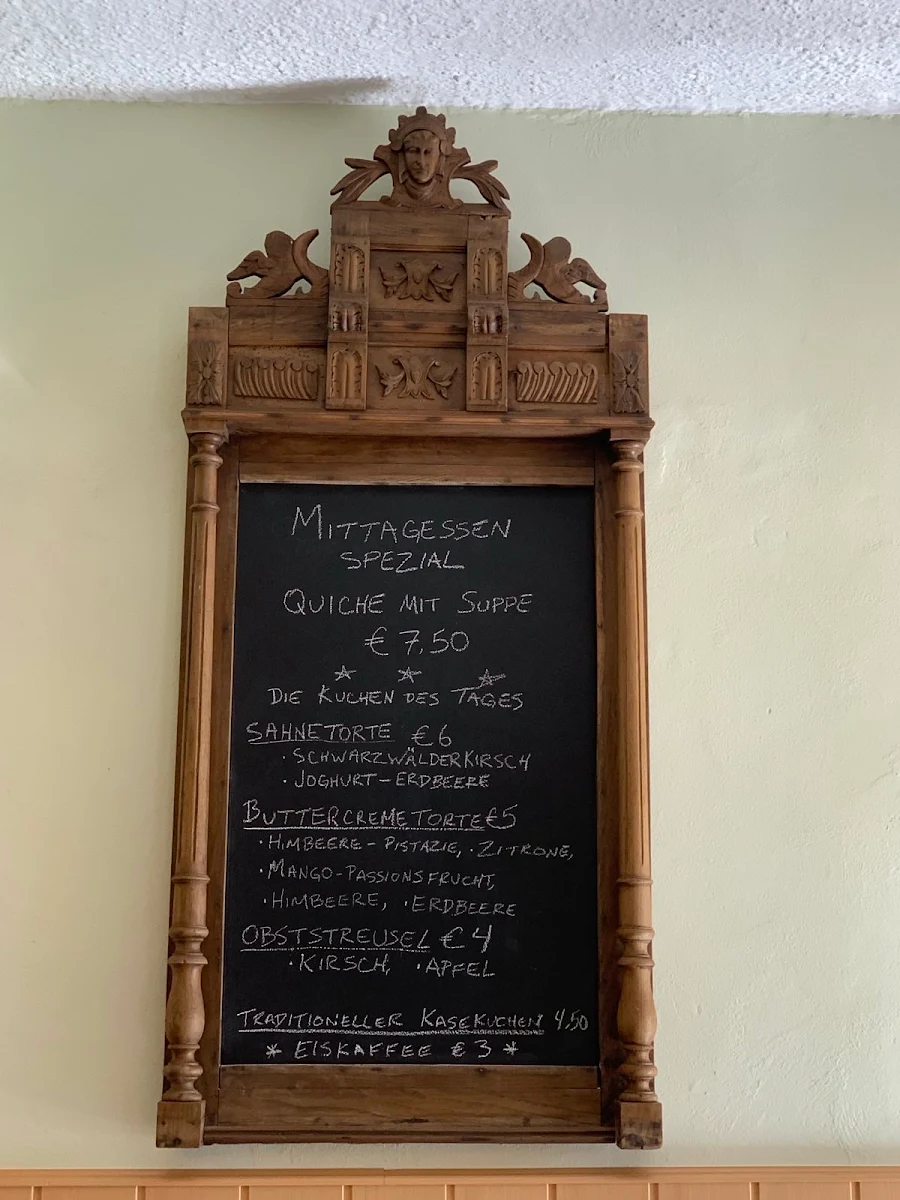 MITTAGESSEN
SPEZIAL
QUICHE MIT SUPPE
€ 7,50
DIE KUCHEN DES TAGES
SAHNETORTE €6
· SCHWARZWÄLDERKIRSCH
· JOGHURT-ERDBEERE
BUTTERCREMETORTE €5
· HIMBEERE - PISTAZIE, · ZITRONE,
· MANGO-PASSIONSFRUCHT,
· HIMBEERE, · ERDBEERE
OBSTSTREUSEL € 4
· KIRSCH, · APFEL
TRADITIONELLER KASEKUCHEN 4.50
* EISKAFFEE € 3 *